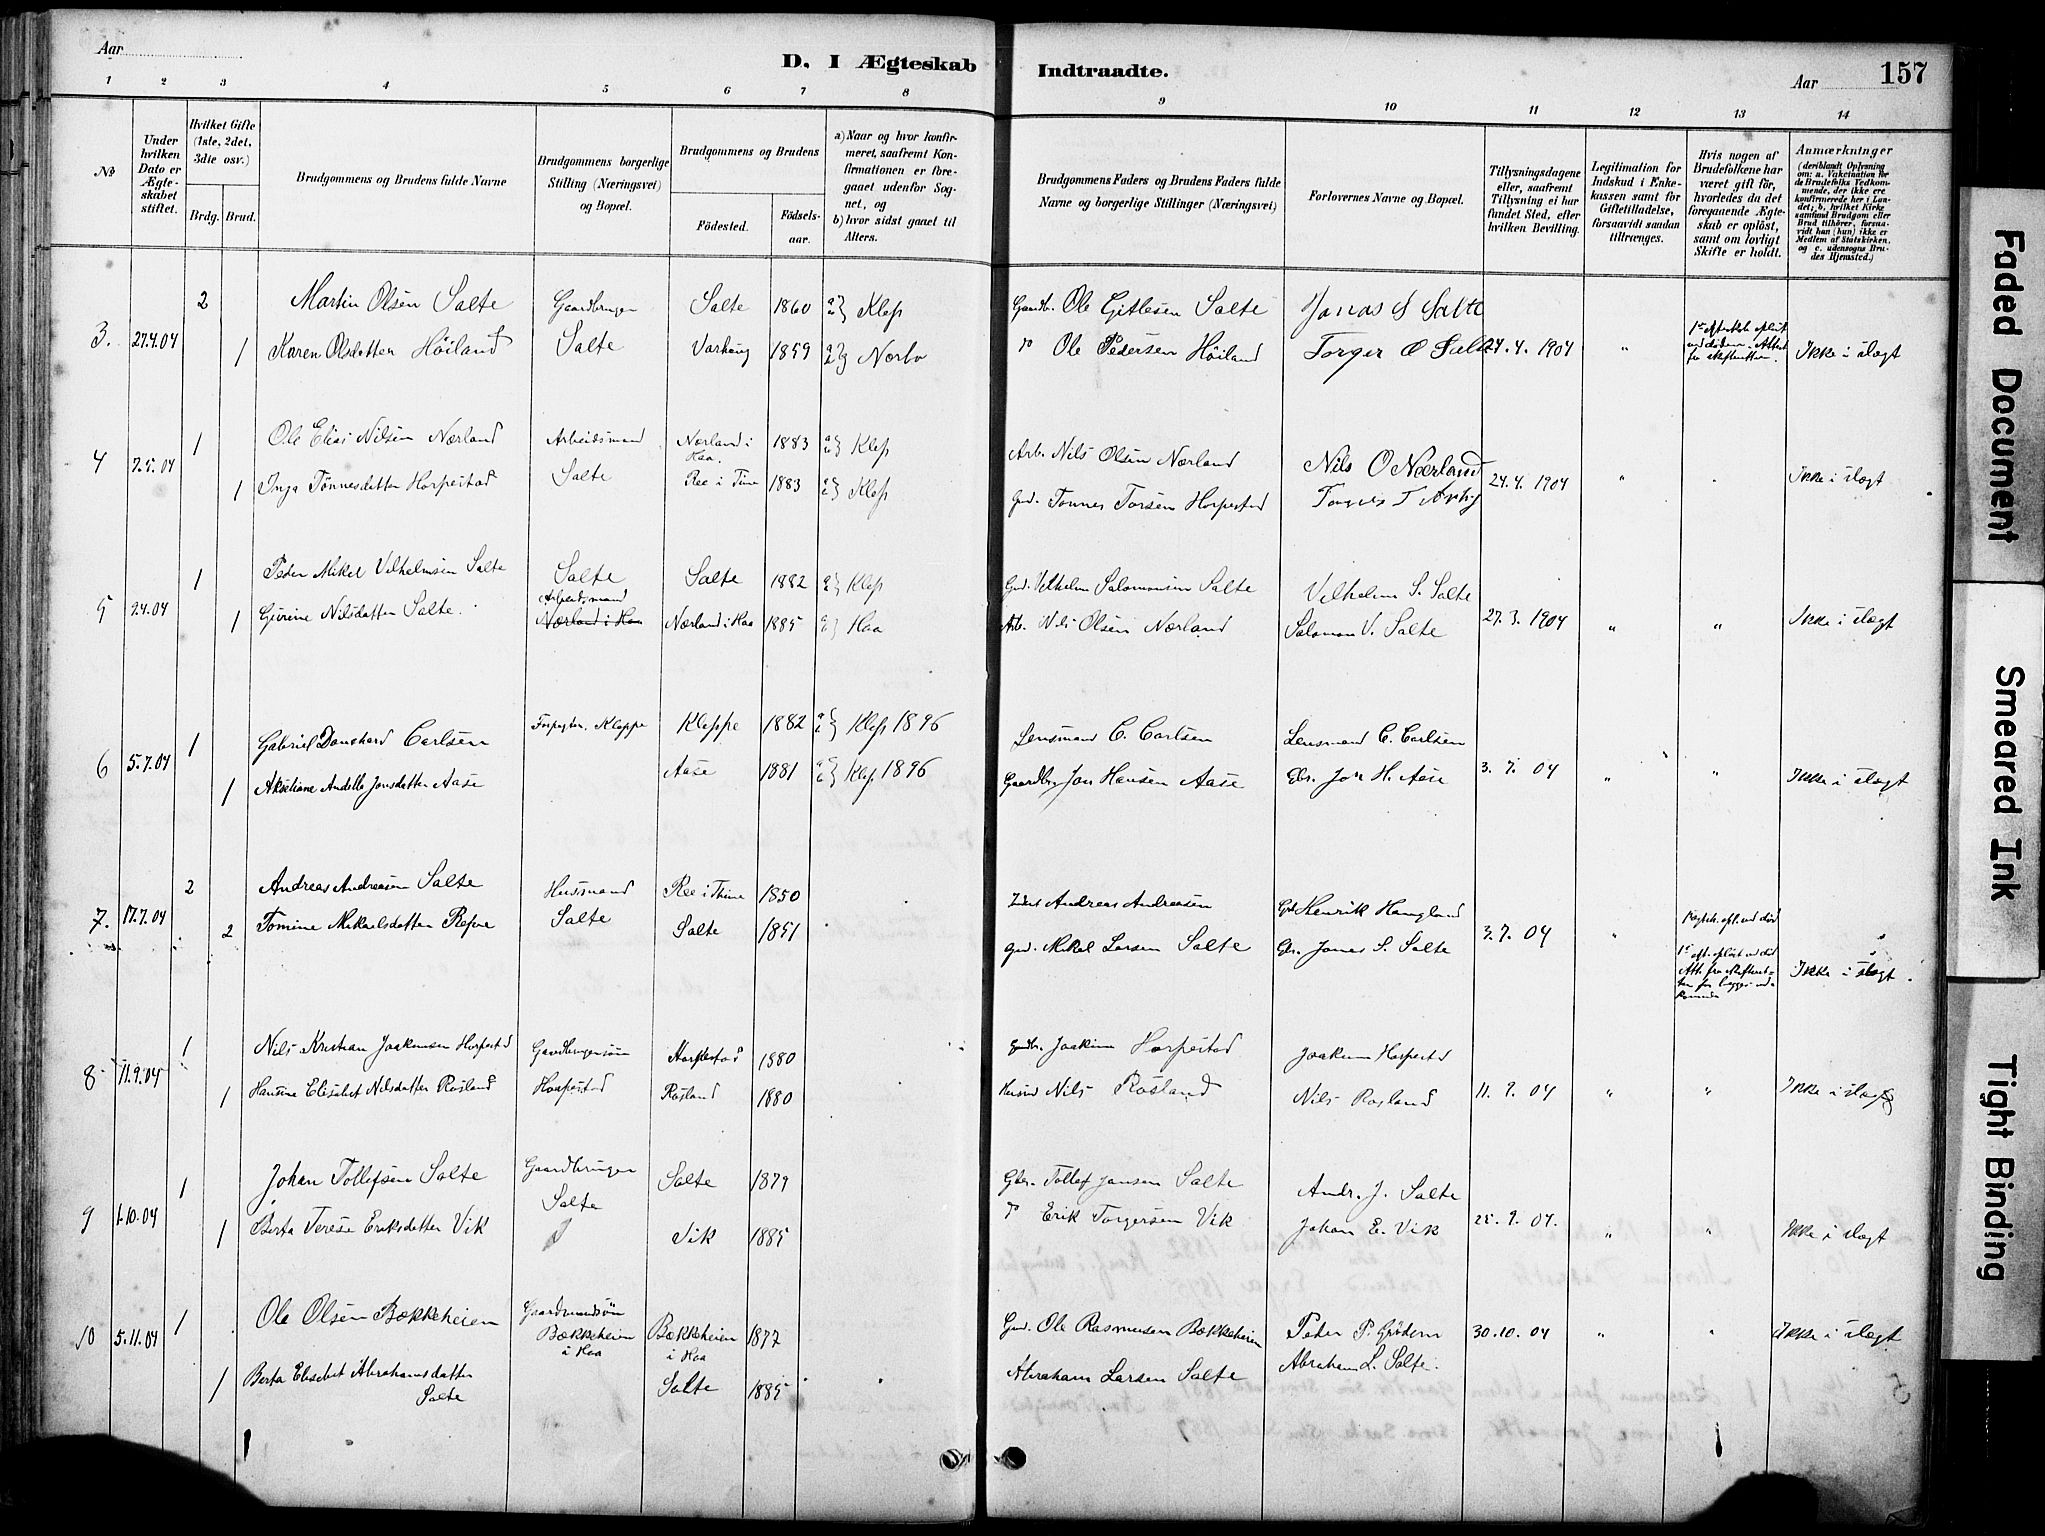 Aar
D. I Ægteskab Indtraadte.
Aar
157
1 2 3 4 5 6 7 8 9 10 11 12 13 14
№
Under hvilken Dato er Ægte-skabet stiftet.
Hvilket Gifte (1ste, 2det, 3die osv.)
Brdg. Brud.
Brudgommens og Brudens fulde Navne
Brudgommens borgerlige Stilling (Næringsvei) og Bopæl.
Brudgommens og Brudens
Födested.
Födsels-aar.
a) Naar og hvor konfir-meret, saafremt Kon-firmationen er fore-gaaet udenfor Sog-net, og
b) hvor sidst gaaet til Alters.
Brudgommens Faders og Brudens Faders fulde Navne og borgerlige Stillinger (Næringsvei)
Forlovernes Navne og Bopæl.
Tillysningsdagene eller, saafremt Tillysning ei har fundet Sted, efter hvilken Bevilling.
Legitimation for Indskud i Enke-kassen samt for Giftetilladelse, forsaavidt saadan tiltrænges.
Hvis nogen af Brudefolkene har været gift för, hvorledes da det foregaaende Ægte-skab er oplöst, samt om lovligt Skifte er holdt.
Anmærkninger (deriblandt Oplysning om: a. Vakcination for de Brudefolks Vedkom-mende, der ikke ere konfirmerede her i Lan-det; b. hvilket Kirke-samfund Brudgom eller Brud tilhörer, forsaa-vidt han (hun) ikke er Medlem af Statskirken, og c. udensogns Bru-des Hjemsted.)
3. 27.4.04 2 Martin Olsen Salte Gaardbruger Salte 1860 Klep Gaardb. Ole Gitlesen Salte Jonas S Salte
1 Karen Olsdatter Höiland Salte Varhaug 1859 Nærbø do Ole Pedersen Höiland Torger O Salte 24.4.1904 " Ikke i slægt
4 7.5.04 1 Ole Elias Nilsen Nærland Arbeidsmand Nærland i Haa. 1883 Klep Arb. Nils Olsen Nærland Nils O Nærland
1 Inga Tönnesdatter Horpestad Salte Ree i Time 1883 Klep Gmd. Tönnes Torsen Horpestad 24.4.1904 " " Ikke i slægt
5 2.4.04 1 Peder Mikal Vilhelmsen Salte Salte Arbeidsmand Salte 1882 Klep Gmd. Vilhelm Salomonsen Salte Vilhelm S. Salte
1 Gurine Nilsdatter Salte. Nærland i Haa Nærland i Haa 1885 Haa Arb. Nils Olsen Nærland Salomon V. Salte 27.3.1904 " " Ikke i slægt
6 5.7.04 1 Gabriel Danchard Carlsen Kleppe Kleppe 1882 Klep 1896 Lensmand C. Carlsen Lensmand C. Carlsen
1 Akseliane Andella Jonsdatter Aase Aase 1881 Klep 1896 Gaardbr. Jon Hansen Aase Gbr. Jon H. Aase 3.7.04 " " Ikke i slægt
7. 17.7.04 2 Andreas Andreasen Salte Husmand Ree i Thime 1850 Andreas Andreasen Henrik Haugland
2 Tomine Mikaelsdatter Refve Salte Salte 1851 Gmd. Mikal Larsen Salte Gbr. Jonas S. Salte 3.7.04 " Ikke i slægt.
8 11.9.04 1 Nils Kristian Joakimsen Horpestad Gaardbrugersön Horpestad 1880 Gaardbr. Joakim Horpestad Joakim Horpestad
1 Hansine Elisabet Nilsdatter Rosland Horpestad Rosland 1880 Husmd Nils Rosland Nils Rosland 11.9.04 " " Ikke i slægt
9 1.10.04 1 Johan Tollefsen Salte Gaardbruger Salte 1879 Gbr. Tollef Jansen Salte Andr. J. Salte
1 Berta Terese Eriksdatter Vik Salte Vik 1885 do Erik Torgersen Vik Johan E. Vik 25.9.04. " " Ikke i slægt
10 5.11.04 1 Ole Olsen Bækkeheien Gaardmandsön Bækkeheien i Haa Bækkeheien i Haa 1877 Gmd. Ole Rasmussen Bækkeheien Peder P. Gröden 30.10.04 " " Ikke i slægt
1 Berta Elisabet Abrahamsdatter Salte Salte 1885 Abraham Larsen Salte Abraham L. Salte.
Faded Document
Smeared Ink
Tight Binding